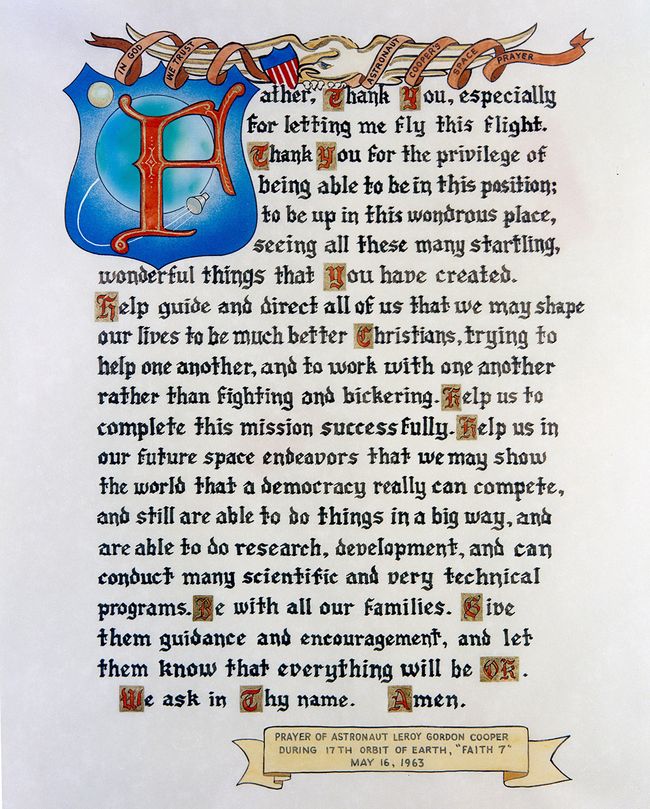 IN GOD WE TRUST ASTRONAUT COOPER'S SPACE PRAYER
Father, Thank You, especially
for letting me fly this flight.
Thank You for the privilege of
being able to be in this position;
to be up in this wondrous place,
seeing all these many startling,
wonderful things that You have created.
Help guide and direct all of us that we may shape
our lives to be much better Christians, trying to
help one another, and to work with one another
rather than fighting and bickering. Help us to
complete this mission successfully. Help us in
our future space endeavors that we may show
the world that a democracy really can compete,
and still are able to do things in a big way, and
are able to do research, development, and can
conduct many scientific and very technical
programs. Be with all our families. Give
them guidance and encouragement, and let
them know that everything will be OK.
We ask in Thy name. Amen.
PRAYER OF ASTRONAUT LEROY GORDON COOPER
DURING 17TH ORBIT OF EARTH, "FAITH 7"
MAY 16, 1963